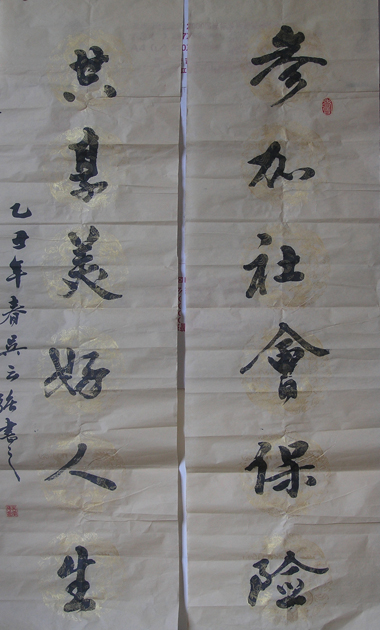 参加社會保险
共享美好人生
乙丑年春吴云 書之